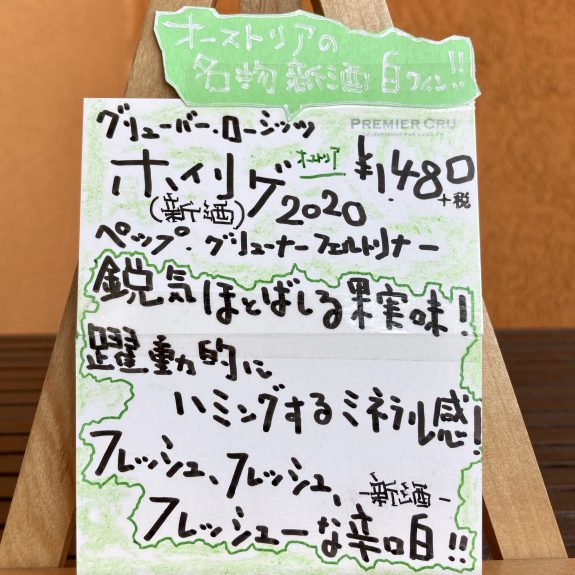 オーストリアの
名物 新酒 白ワイン!!
グリューバー・ローシッツ
PREMIER CRU
ホイリゲ オーストリア ¥1.480
(新酒) 2020 +税
ペップ・グリューナーフェルトリナー
鋭気ほとばしる果実味!
躍動的に
ハミングするミネラル感!
フレッシュ、フレッシュ、
新酒
フレッシューな辛口白!!